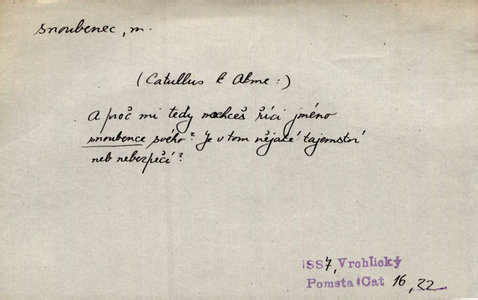 snoubenec, m.
(Catullus k Akme:)
A proč mi tedy nechceš říci jméno
snoubence svého? Je v tom nějaké tajemství
neb nebezpečí?
SS7, Vrchlický
Pomsta Cat 16, 22